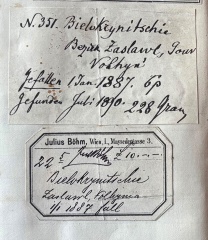 N. 351. Bielokrynitschie
Bezirk Zaslawl, Gouv
Volhyn.
Gefallen 1 Jan. 1887. 6p
Gefunden Juli 1890 - 228 Gram
Julius Böhm, Wien, I., Maysedergasse 3.
22 £ 10.—
Bielokrynitschie
Zaslawl, Volhynia
1/1 1887 fall